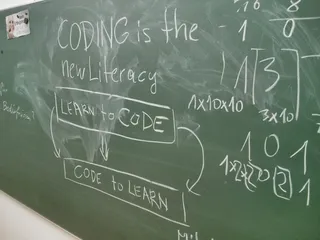 CODING is the
new Literacy
LEARN to CODE
CODE to LEARN
8
1 0
1 3
1x10x10
3x10
1 0 1